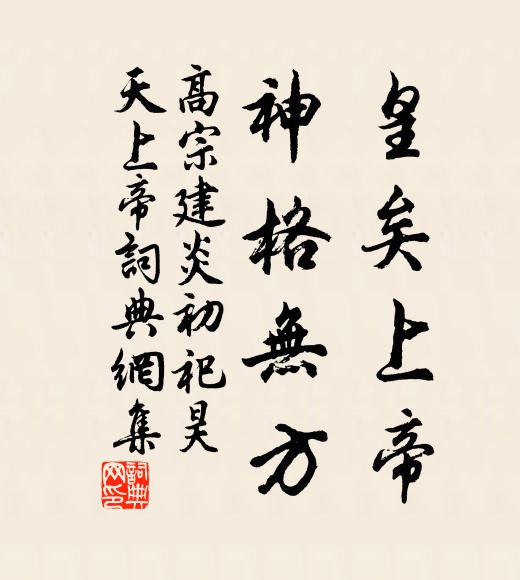 皇矣上帝
神格無方
高宗建炎初祀昊
天上帝詞典網集
詞典網印